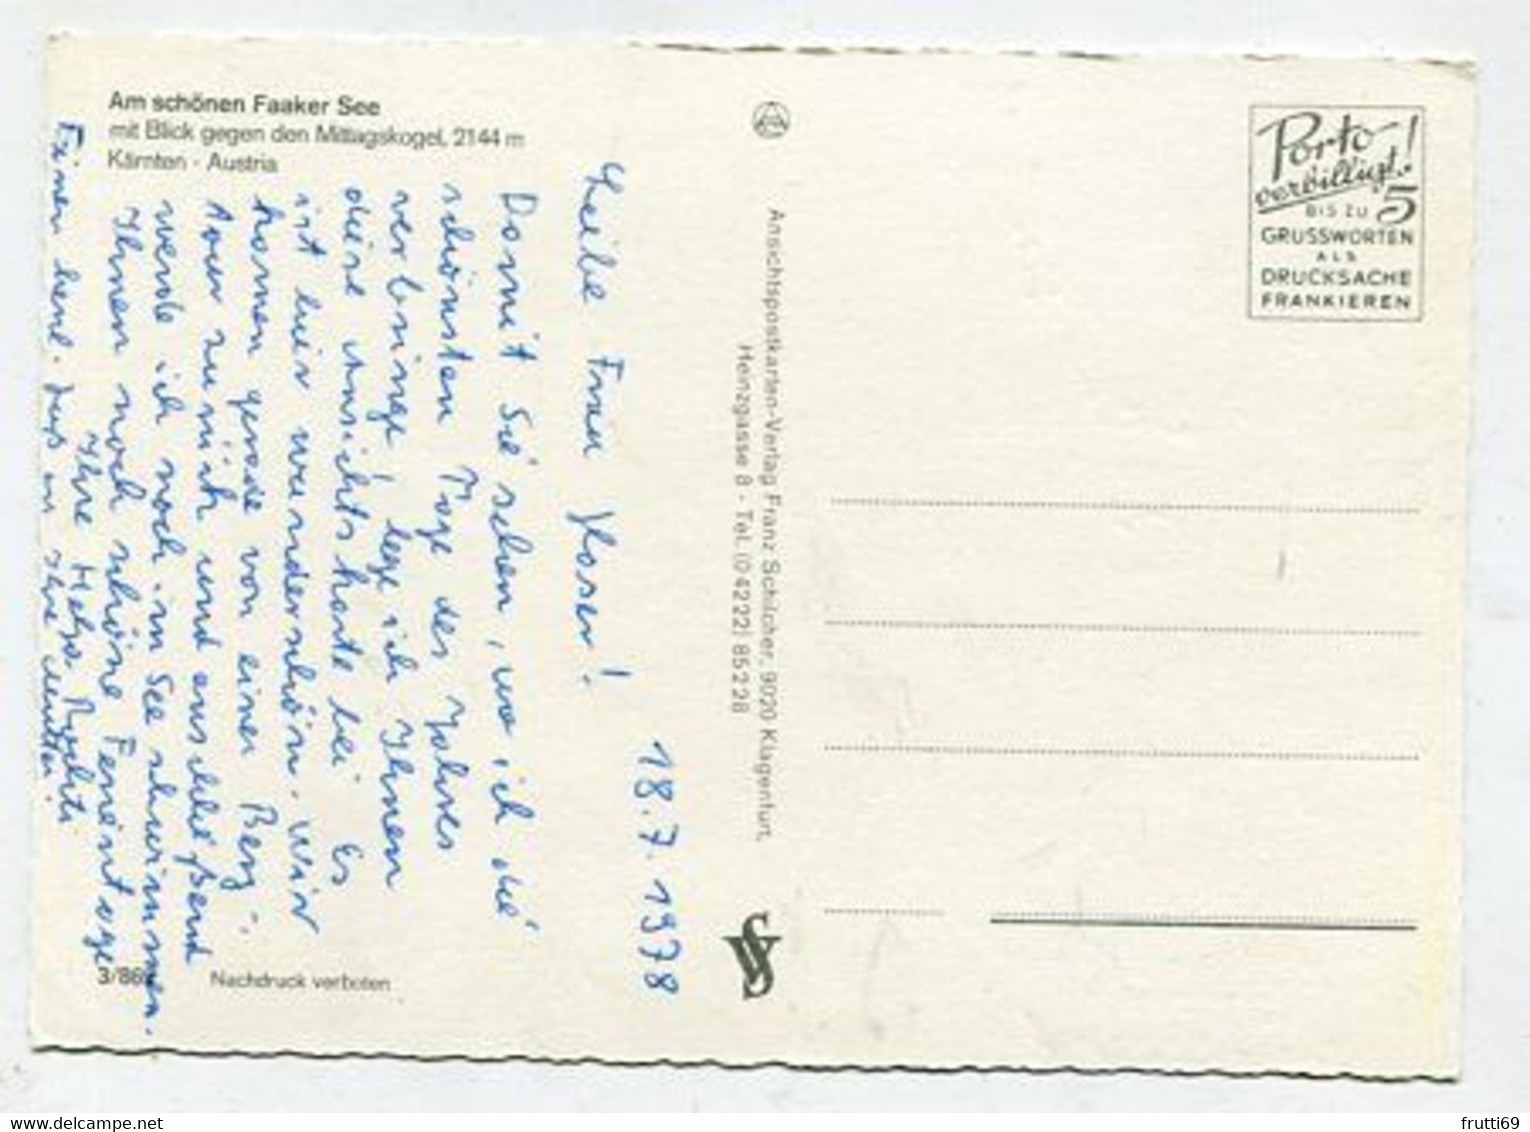 Am schönen Faaker See
mit Blick gegen den Mittagskogel, 2144 m
Kärnten - Austria
18.7.1978
Leibe Frau Hoser!
Damit Sie sehen, wo ich die
schönsten Tage des Jahres
verbringe, lege ich Ihnen
diese Ansichtskarte bei. Es
ist hier wunderschön. Wir
kamen gerade von einer Berg
tour zurück und anschließend
werde ich noch im See schwimmen.
Ihnen noch schöne Ferientage
Ihre Helga
Einen herzl. Gruß an Ihre Mutter
3/86
Nachdruck verboten
Ansichtspostkarten-Verlag Franz Schilcher, 9020 Klagenfurt,
Heinzgasse 8 - Tel. (04222) 85228
Porto
verbilligt!
BIS ZU 5
GRUSSWORTEN
ALS
DRUCKSACHE
FRANKIEREN
www.delcampe.net
frutti69